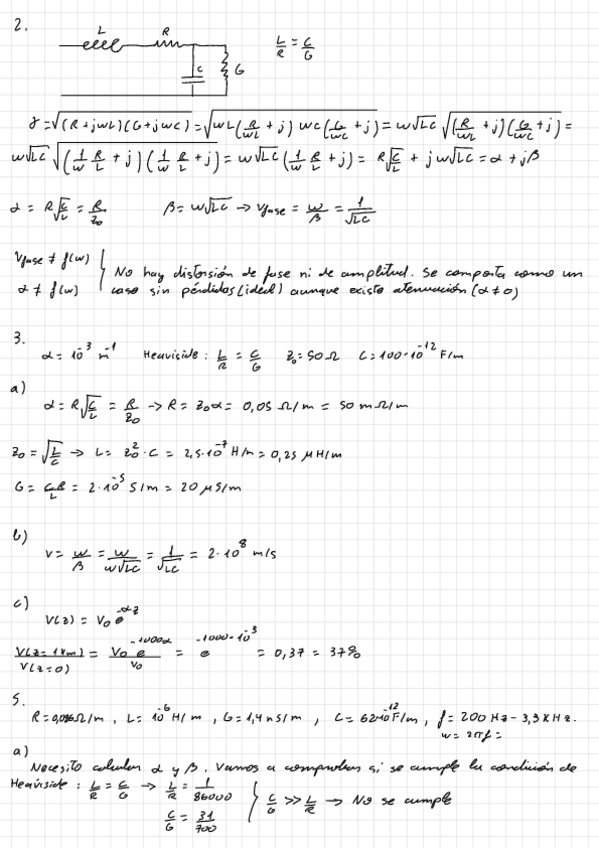 2.
L R C G
L/R = C/G
γ = √((R+jωL)(G+jωC)) = √(ωL(R/ωL + j) ωC(G/ωC + j)) = ω√LC √((R/ωL + j)(G/ωC + j)) =
ω√LC √((1/ω R/L + j)(1/ω R/L + j)) = ω√LC (1/ω R/L + j) = R√(C/L) + jω√LC = α + jβ
α = R√(C/L) = R/Z0 β = ω√LC → Vfase = ω/β = 1/√LC
Vfase ≠ f(ω) } No hay distorsión de fase ni de amplitud. Se comporta como un
α ≠ f(ω) } caso sin pérdidas (ideal) aunque existe atenuación (α≠0)
3.
α = 10^-3 m^-1 Heaviside: L/R = C/G Z0 = 50Ω C = 100·10^-12 F/m
a)
α = R√(C/L) = R/Z0 → R = Z0α = 0,05 Ω/m = 50 mΩ/m
Z0 = √(L/C) → L = Z0^2 · C = 2,5·10^-7 H/m = 0,25 μH/m
G = CR/L = 2·10^-5 S/m = 20 μS/m
b)
v = ω/β = ω/ω√LC = 1/√LC = 2·10^8 m/s
c)
V(z) = V0 e^-αz
V(z=1km)/V(z=0) = V0 e^-1000α/V0 = e^-1000·10^-3 = 0,37 = 37%
5.
R = 0,086Ω/m, L = 10^-6 H/m, G = 1,4 nS/m, C = 62·10^-12 F/m, f = 200 Hz - 3,3 KHz.
ω = 2πf =
a)
Necesito calcular α y β. Vamos a comprobar si se cumple la condición de
Heaviside: L/R = C/G → L/R = 1/86000 } C/G >> L/R → No se cumple
C/G = 31/700